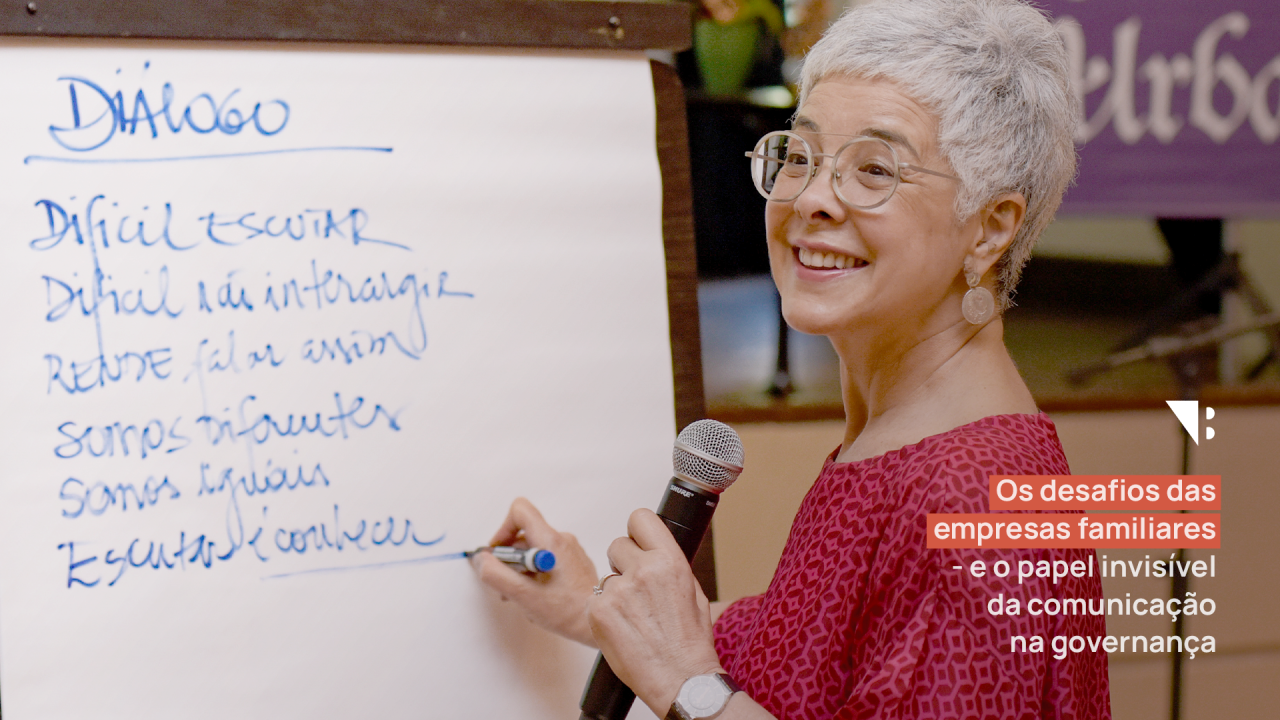 DIÁLOGO
Difícil ESCUTAR
Difícil não interargir
RENDE falar assim
somos Diferentes
somos iguais
Escutar é conhecer
Urbo
SHURE
B
Os desafios das
empresas familiares
- e o papel invisível
da comunicação
na governança